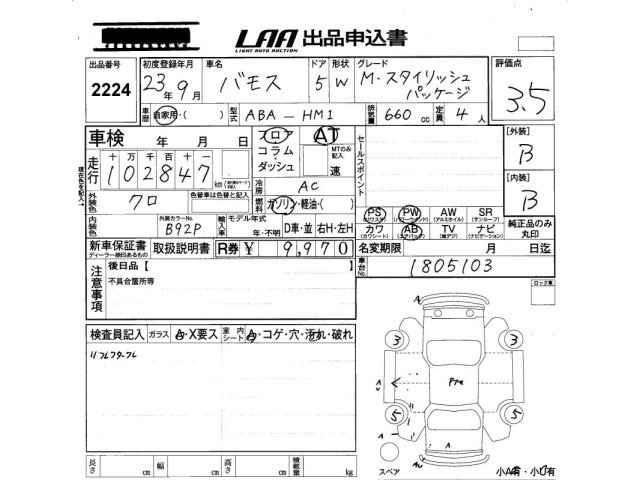 LAA 出品申込書
LIGHT AUTO AUCTION
出品番号 初度登録年月 車名 ドア 形状 グレード 評価点
2224 23年9月 バモス 5 W M・スタイリッシュパッケージ 3.5
車歴 自家用・( ) 型式 ABA-HM1 排気量 660 cc 定員 4人
車検 年 月 日 フロア コラム・ダッシュ AT MTのみ記入 速 セールスポイント
【外装】
B
【内装】
B
走行 十万千百十一
102847 km
現在色を記入→
冷房 AC
外装色 クロ 色替車は色替と記入 燃料 ガソリン・軽油・( )
PS PW AW SR 純正品のみ丸印
(パワステ) (パワーウィンドウ) (アルミホイル) (サンルーフ)
カワ AB TV ナビ
(カワシート) (エアバック) (地デジ) (ナビゲーション)
内装色 外装カラーNo. B92P 輸入車 モデル年式 年・不明 D車・並 右H・左H
新車保証書 取扱説明書 R券 ¥ 9,970 名変期限 月 日迄
ディーラー捺印あるもの
車台No. 1805103
注意事項 後日品【 】
不具合箇所等
ロック車
検査員記入 ガラス A・X要ス 室内シート A・コゲ・穴・汚れ・破れ
リフレクターワレ
3 3
A
5 5
A
スペア 小A有・小U有
長さ cm 幅 cm 高さ cm 積載量 kg